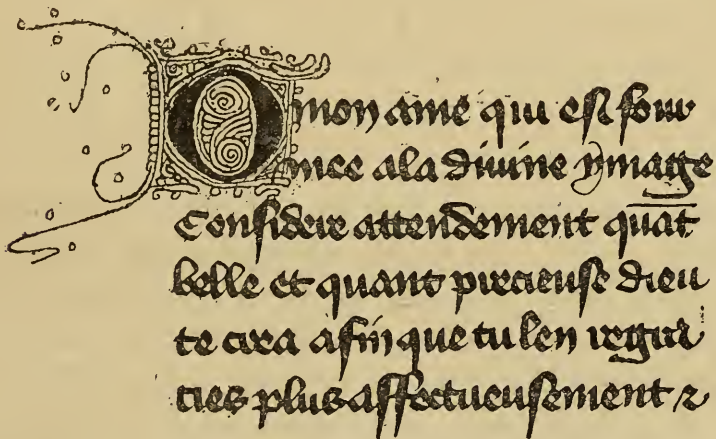 O mon ame qui est four
mee a la divine ymage
Considere attendement quāt
belle et quant precieuse dieu
te crea afin que tu len regra
cies plus affectueusement &